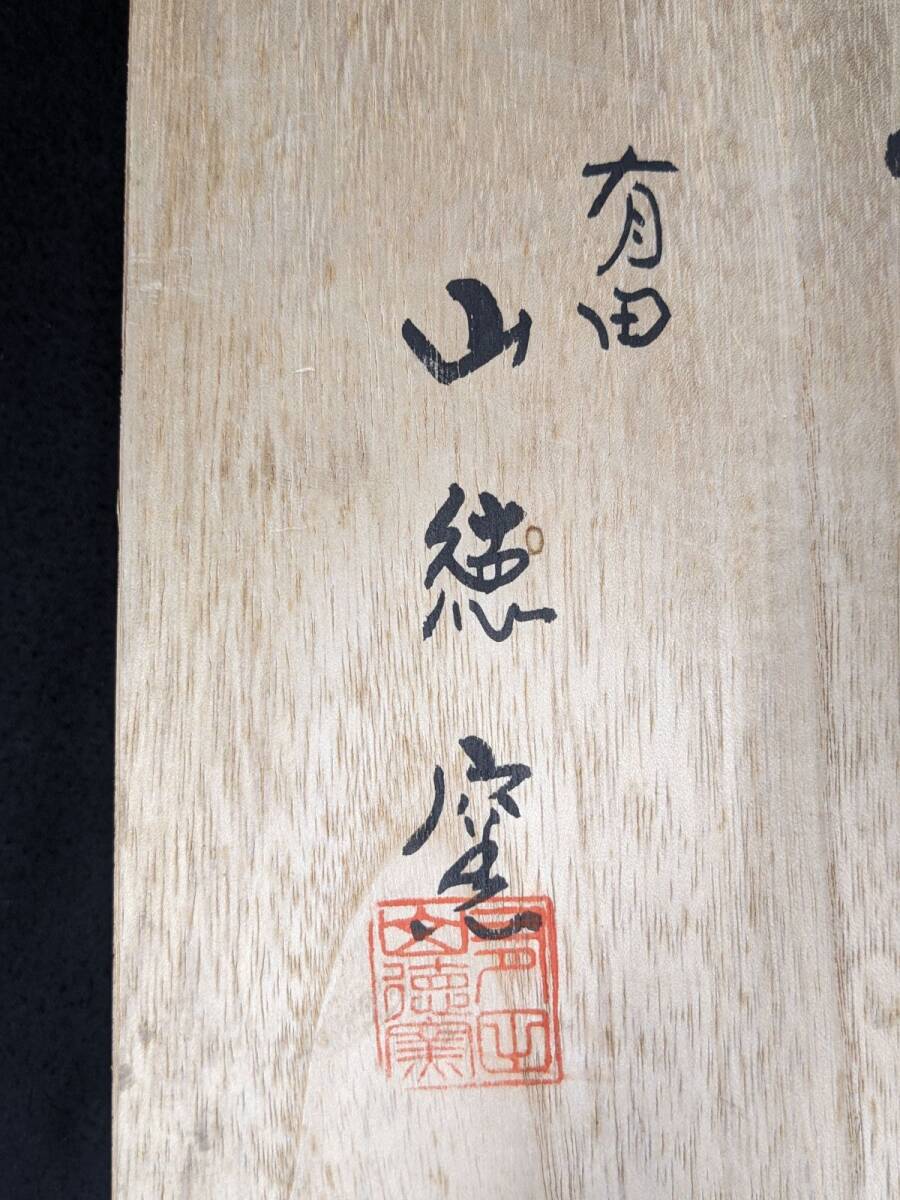 有田
山徳窯
有田
山徳窯